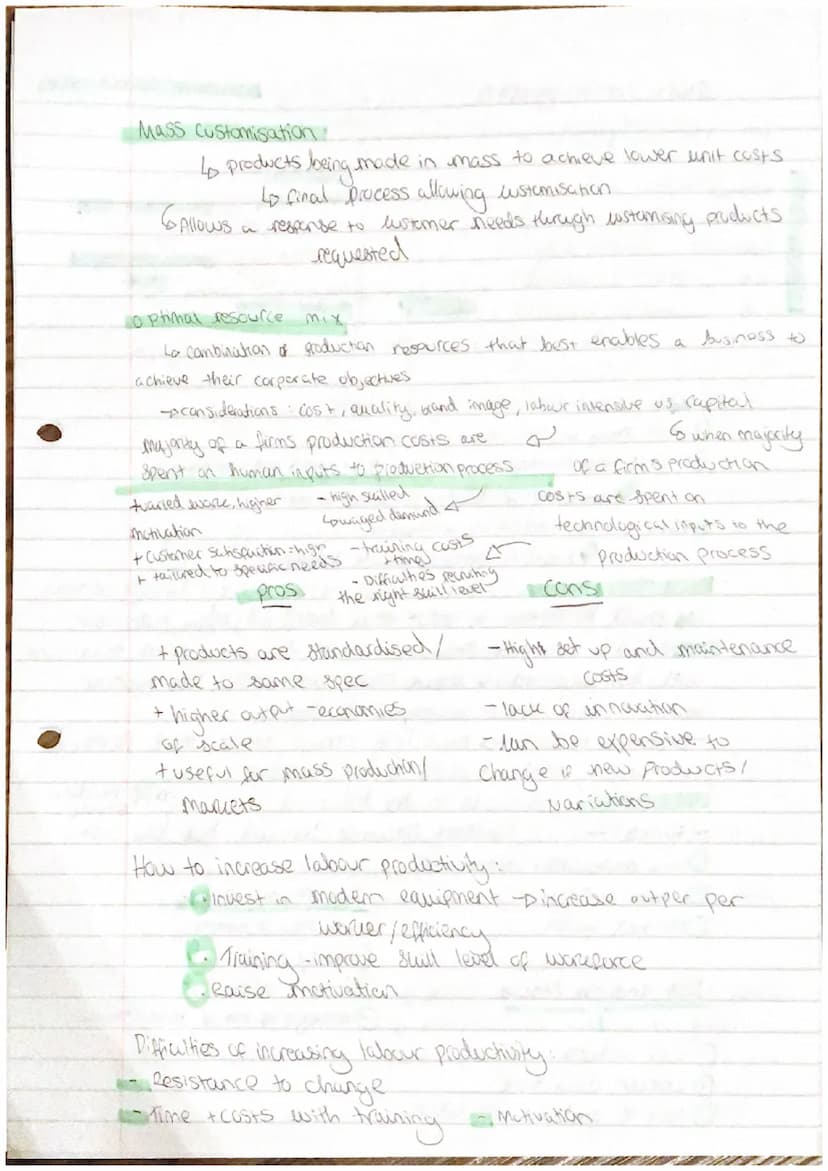 Mass Customisation:
↳ products being made in mass to achieve lower unit costs
↳ final process allowing customisation
↳ Allows a response to customer needs through customising products
requested
Optimal resource mix
↳ combination of production resources that best enables a business to
achieve their corporate objectives
→ considerations: cost, quality, brand image, labour intensive vs capital
majority of a firms production costs are
spent on human inputs to production process
↳ when majority
of a firms production
costs are spent on
technological inputs to the
production process
+ varied work, higher
motivation
+ customer satisfaction = high
+ tailored to specific needs
- high skilled
↳ waged demand
- training costs
+ time
- Difficulties recruiting
the right skill level
pros
cons
+ products are standardised/
made to same spec
+ higher output - economies
of scale
+ useful for mass production/
markets
- High set up and maintenance
costs
- lack of innovation
- can be expensive to
change if new products/
variations
How to increase labour productivity:
• Invest in modern equipment → increase outper per
worker/efficiency
• Training - improve skill level of workforce
• Raise motivation
Difficulties of increasing labour productivity:
- Resistance to change
- Time + costs with training - Motivation